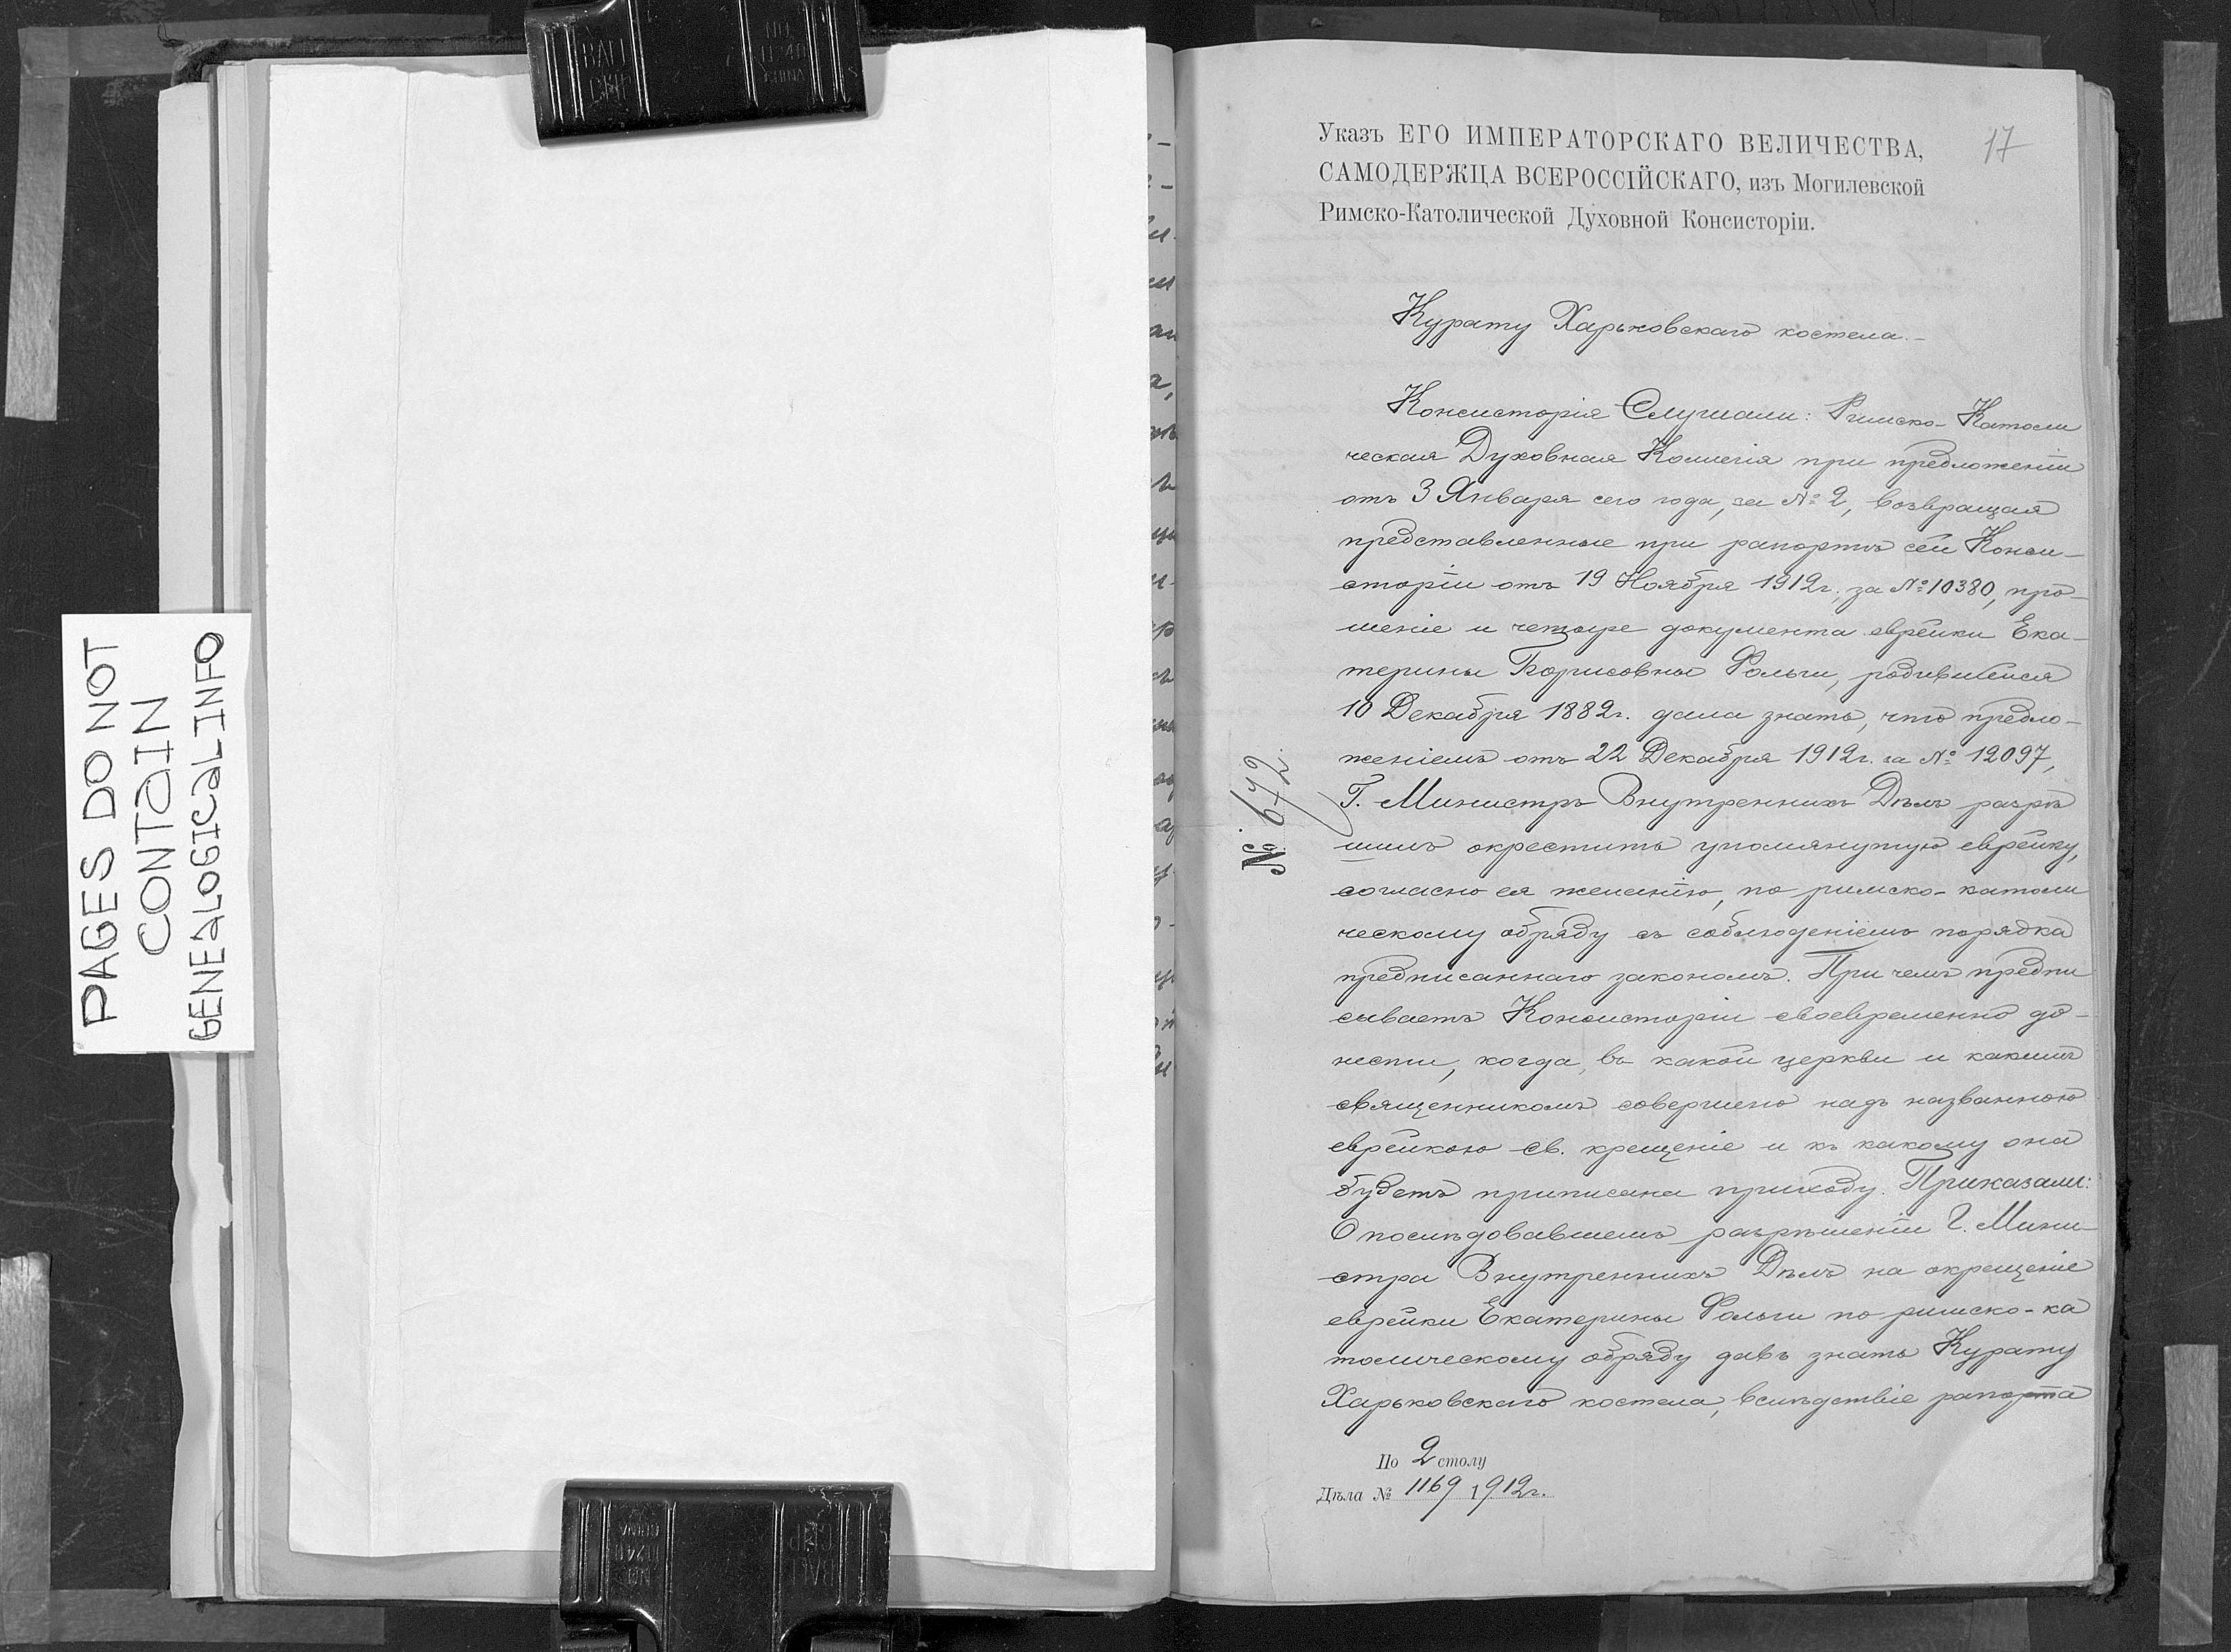 PAGES DO NOT
CONTAIN
GENEALOGICAL INFO
17
Указъ ЕГО ИМПЕРАТОРСКАГО ВЕЛИЧЕСТВА,
САМОДЕРЖЦА ВСЕРОССІЙСКАГО, изъ Могилевской
Римско-Католической Духовной Консисторіи.
Курату Харьковскаго костела.-
Консисторія Слушали: Римско-Католи
ческая Духовная Коллегія при предложеніи
отъ 3 Января сего года, за № 2, возвращая
представленные при рапортѣ сей Конси-
сторіи отъ 19 Ноября 1912г., за № 10380, про-
шеніе и четыре документа еврейки Ека-
терины Борисовны Фольги, родившейся
10 Декабря 1882г. дала знать, что предло-
женіемъ отъ 22 Декабря 1912г. за № 12097,
Г. Министръ Внутреннихъ Дѣлъ разрѣ
шилъ окрестить упомянутую еврейку,
согласно ея желанію, по римско-католи
ческому обряду съ соблюденіемъ порядка
предписаннаго закономъ. При чемъ предпи
сываетъ Консисторіи своевременно до-
нести, когда, въ какой церкви и какимъ
священникомъ совершено надъ названною
еврейкою св. крещеніе и къ какому она
будетъ приписана приходу. Приказали:
О послѣдовавшемъ разрѣшеніи Г. Мини-
стра Внутреннихъ Дѣлъ на окрещеніе
еврейки Екатерины Фольги по римско-ка
толическому обряду давъ знать Курату
Харьковскаго костела, вслѣдствіе рапорта
№ 672.
По 2 столу
Дѣла № 1169 1912г.